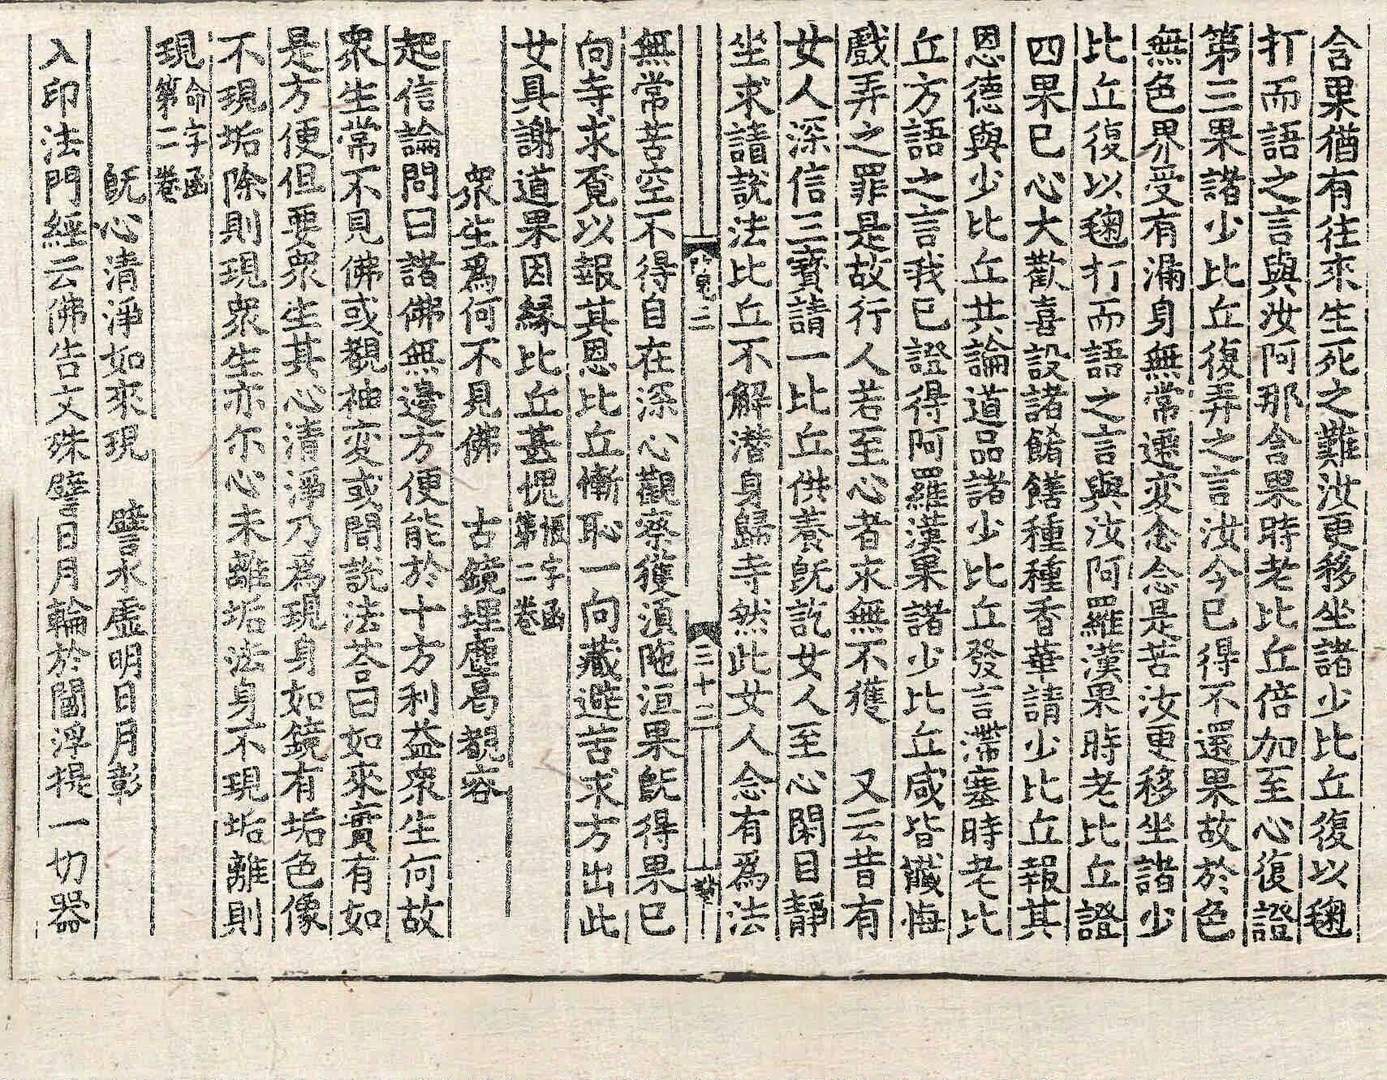 含果猶有往來生死之難汝更移坐諸少比丘復以毱
打而語之言與汝阿那含果時老比丘倍加至心復證
第三果諸少比丘復弄之言汝今已得不還果故於色
無色界受有漏身無常遷変念念是苦汝更移坐諸少
比丘復以毱打而語之言與汝阿羅漢果時老比丘證
四果已心大歡喜設諸餚饍種種香華請少比丘報其
恩德與少比丘共論道品諸少比丘發言滯塞時老比
丘方語之言我已證得阿羅漢果諸少比丘咸皆懺悔
戲弄之罪是故行人若至心者求無不獲　又云昔有
女人深信三寶請一比丘供養旣訖女人至心閉目靜
坐求請說法比丘不解潛身歸寺然此女人念有爲法
二
三十二
無常苦空不得自在深心觀察獲湏陁洹果旣得果已
向寺求覔以報其恩比丘慚恥一向藏避苦求方出此
女具謝道果因緣比丘甚愧
恨字函
第二卷
衆生爲何不見佛　古鏡埋塵曷覩容
起信論問曰諸佛無邊方便能於十方利益衆生何故
衆生常不見佛或覩神変或聞說法荅曰如來實有如
是方便但要衆生其心清淨乃爲現身如鏡有垢色像
不現垢除則現衆生亦尒心未離垢法身不現垢離則
現
命字函
第二卷
旣心清淨如來現　譬水虛明日月彰
入印法門經云佛告文殊譬日月輪於閻浮提一切器